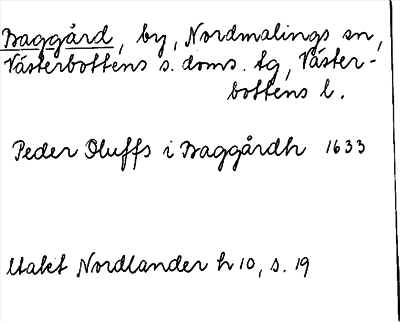 Baggård, by, Nordmalings sn,
Västerbottens s. doms. tg, Väster-
bottens l.
Peder Oluffs i Baggårdh 1633
Utakt Nordlander h 10, s. 19